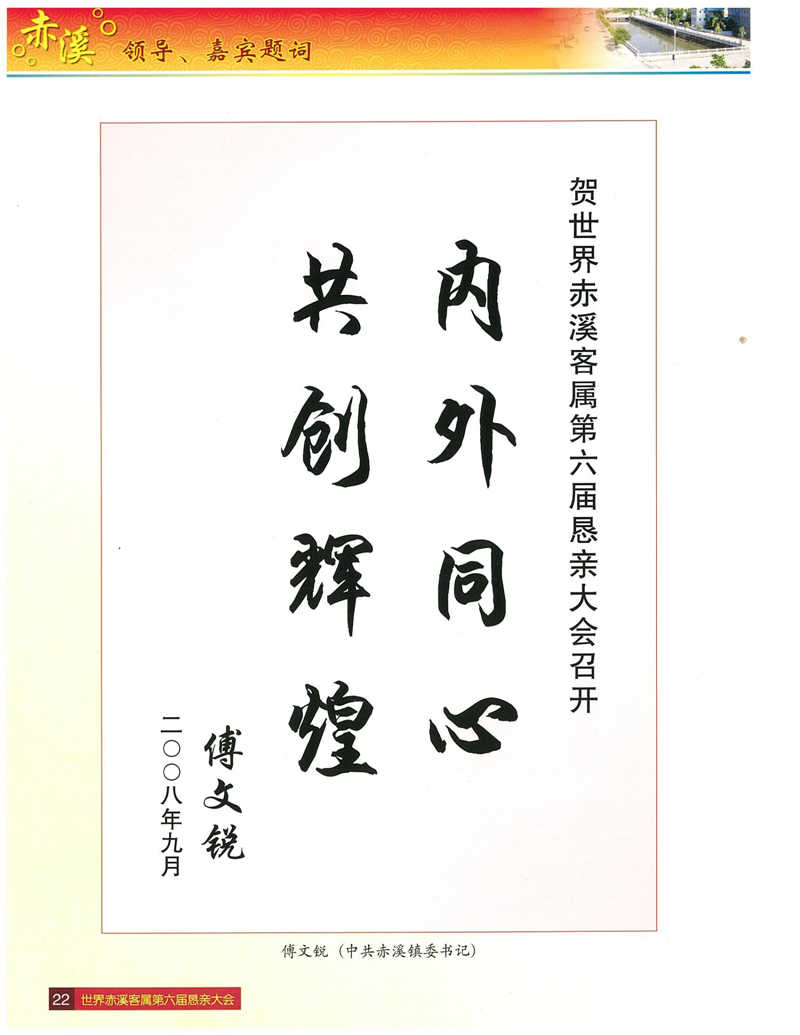 赤溪 领导、嘉宾题词
贺世界赤溪客属第六届恳亲大会召开
内外同心
共创辉煌
傅文锐
二〇〇八年九月
傅文锐（中共赤溪镇委书记）
22 世界赤溪客属第六届恳亲大会